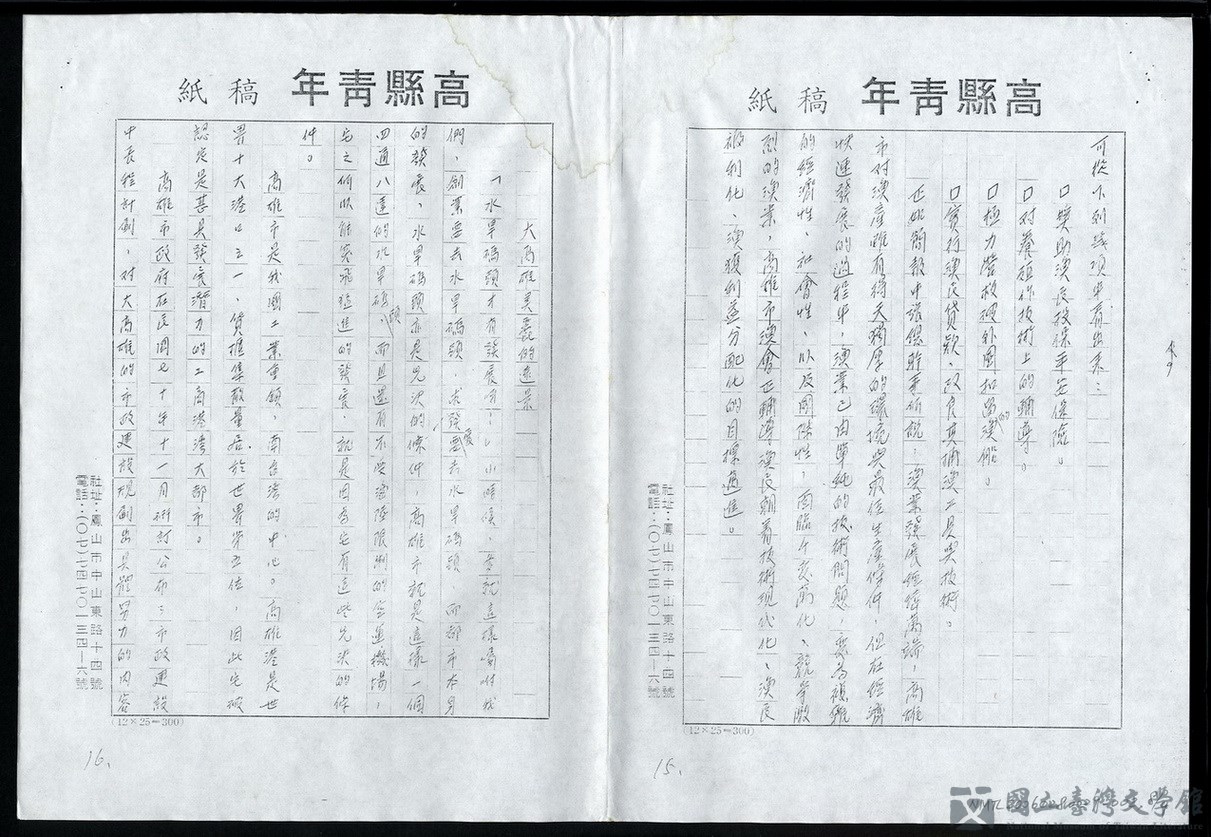 高縣青年 稿紙
可從下列幾項中看出來：
口獎助漁民投保平安保險。
口對養殖作技術上的輔導。
口極力營救被外國扣留的漁船。
口實行漁民貸款、改良其捕漁工具與技術。
正如簡報中蔡總幹事所說：漁業發展經緯萬端，高雄
市對漁產雖有得天獨厚的環境與最佳生產條件，但在經濟
快速發展的過程中，漁業已由單純的技術問題，變為複雜
的經濟性、社會性、以及國際性，面臨千變萬化、競爭激
烈的漁業，高雄市漁會正輔導漁民朝著技術現代化、漁民
福利化、漁獲利益分配化的目標邁進。
社址：鳳山市中山東路十四號
電話：(〇七)七四七〇一三四-六號
(12×25=300)
15.
高縣青年 稿紙
大高雄美麗的遠景
「水旱碼頭才有發展嘛！」小時候，爸就這樣囑咐我
們，創業要去水旱碼頭，求發展要去水旱碼頭，而都市本身
的發展，水旱碼頭亦是先決的條件，高雄市就是這樣一個
四通八達的水旱碼頭，而且還有不受海陸限制的空運機場，
它之所以能突飛猛進的發展，就是因為它有這些先決的條
件。
高雄市是我國工業重鎮，南台灣的中心。高雄港是世
界十大港口之一，貨櫃集散量居於世界第五位，因此它被
認定是甚具發展潛力的工商港灣大都市。
高雄市政府在民國七十年十一月研訂公布：市政建設
中長程計劃，對大高雄的市政建設規劃出具體努力的內容
社址：鳳山市中山東路十四號
電話：(〇七)七四七〇一三四-六號
(12×25=300)
16.
國立臺灣文學館
National Museum of Taiwan Literature